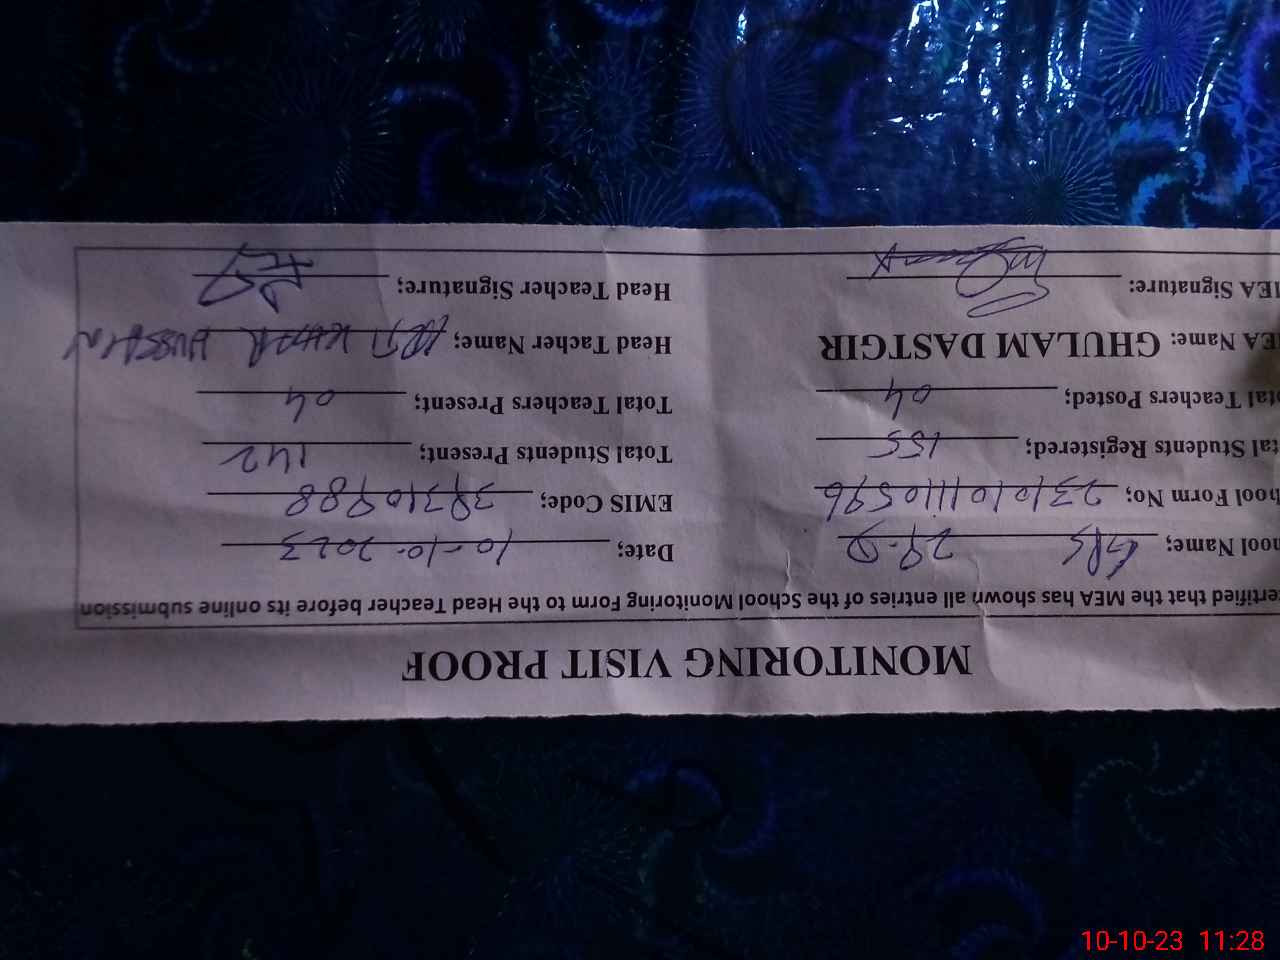 MONITORING VISIT PROOF
ertified that the MEA has shown all entries of the School Monitoring Form to the Head Teacher before its online submission
hool Name; GPS 29-D Date; 10-10-2023
hool Form No; 231010111110596 EMIS Code; 39310988
tal Students Registered; 155 Total Students Present; 142
tal Teachers Posted; 04 Total Teachers Present; 04
EA Name: GHULAM DASTGIR Head Tacher Name; KHIZAR HUSSAIN
MEA Signature: Head Teacher Signature;
10-10-23 11:28